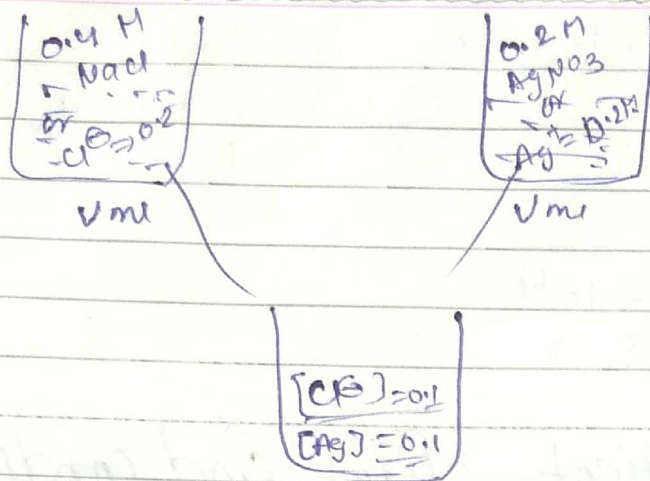 0.4 M
NaCl
or
Cl⊖ ⇒ 0.2
V ml
0.2 M
AgNO3
or
Ag+ = 0.2M
V ml
[Cl⊖] = 0.1
[Ag] = 0.1